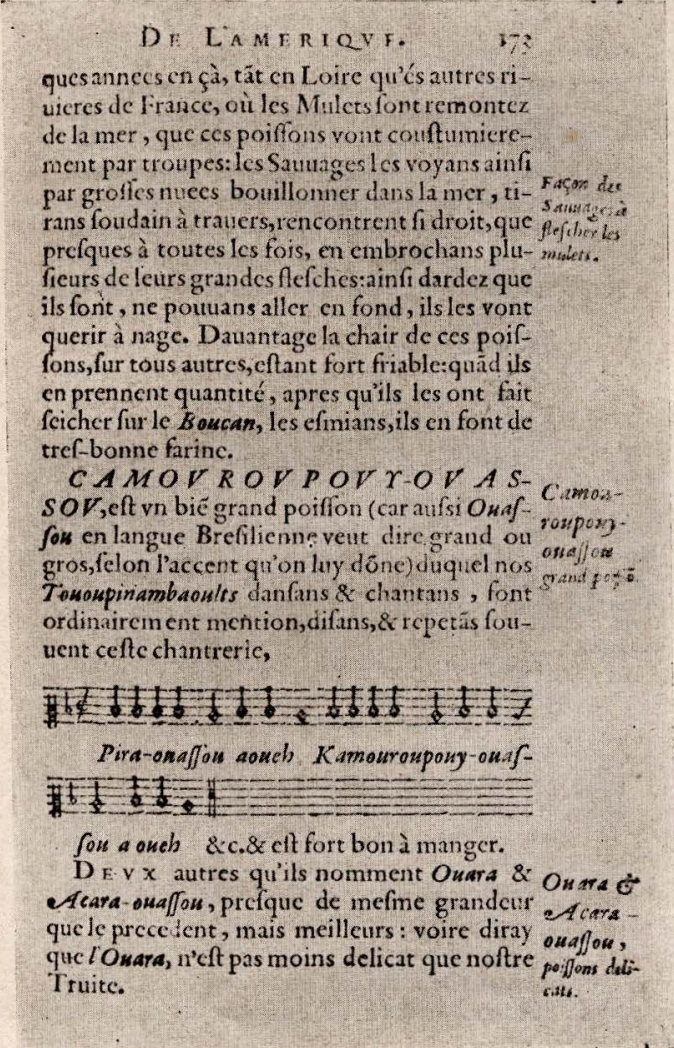 DE L'AMERIQVE. 173
ques annees en çà, tãt en Loire qu'és autres ri-
uieres de France, où les Mulets ſont remontez
de la mer, que ces poiſſons vont couſtumiere-
ment par troupes: les Sauuages les voyans ainſi
par groſſes nuees bouillonner dans la mer, ti-
rans ſoudain à trauers, rencontrent ſi droit, que
preſques à toutes les fois, en embrochans plu-
ſieurs de leurs grandes fleſches: ainſi dardez que
ils ſont, ne pouuans aller en fond, ils les vont
querir à nage. Dauantage la chair de ces poiſ-
ſons, ſur tous autres, eſtant fort friable: quãd ils
en prennent quantité, apres qu'ils les ont fait
ſeicher ſur le Boucan, les eſmians, ils en font de
treſ-bonne farine.
Façon des
Sauuages à
fleſcher les
mulets.
CAMOVROVPOVY-OVAS-
SOV, eſt vn biẽ grand poiſſon (car auſsi Ouaſ-
ſou en langue Breſilienne veut dire grand ou
gros, ſelon l'accent qu'on luy dõne) duquel nos
Tououpinambaoults danſans & chantans, font
ordinairement mention, diſans, & repetãs ſou-
uent ceſte chantrerie,
Camou-
roupouy-
ouaſſou
grand poiſſõ.
Pira-ouaſſou aoueh Kamouroupouy-ouaſ-
ſou a oueh &c. & eſt fort bon à manger.
DEVX autres qu'ils nomment Ouara &
Acara-ouaſſou, preſque de meſme grandeur
que le precedent, mais meilleurs: voire diray
que l'Ouara, n'eſt pas moins delicat que noſtre
Truite.
Ouara &
Acara-
ouaſſou,
poiſſons deli-
cats.